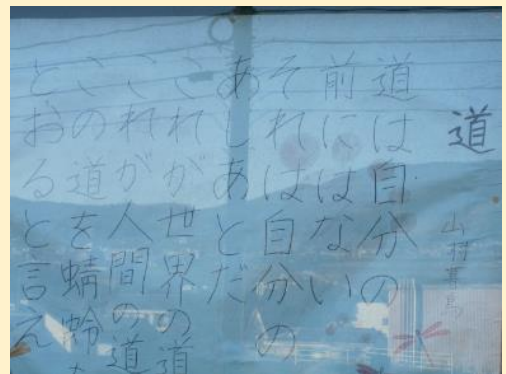 道
山村暮鳥
道は自分の
前にはない
それは自分の
あしあとだ
これが世界の道
これが人間の道
この道を蜻蛉
とおると言え